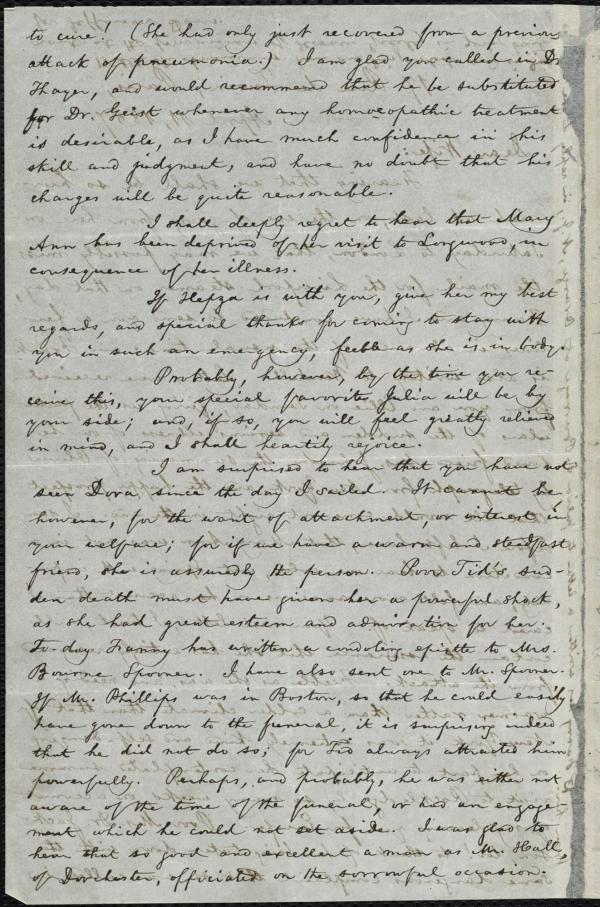 to cure! (She had only just recovered from a previous
attack of pneumonia.) I am glad you called in Dr
Thayer, and would recommend that he be substituted
for Dr. Geist whenever any homœopathic treatment
is desirable, as I have much confidence in his
skill and judgment, and have no doubt that his
charges will be quite reasonable.
I shall deeply regret to hear that Mary
Ann has been deprived of her visit to Longwood, in
consequence of her illness.
If Hepza is with you, give her my best
regards, and special thanks for coming to stay with
you in such an emergency, feeble as she is in body.
Probably, however, by the time you re-
ceive this, your special favorite Julia will be by
your side; and, if so, you will feel greatly relieved
in mind, and I shall heartily rejoice.
I am surprised to hear that you have not
seen Dora since the day I sailed. It cannot be,
however, for the want of attachment, or interest in
your welfare; for if we have a warm and steadfast
friend, she is assuredly the person. Poor Tid's sud-
den death must have given her a powerful shock,
as she had great esteem and admiration for her.
To-day Fanny has written a condoling epistle to Mrs.
Bourne Spooner. I have also sent one to Mr. Spooner.
If Mr. Phillips was in Boston, so that he could easily
have gone down to the funeral, it is surprising indeed
that he did not do so; for Tid always attracted him
powerfully. Perhaps, and probably, he was either not
aware of the time of the funeral, or had an engage-
ment which he could not set aside. I was glad to
hear that so good and excellent a man as Mr. Hall,
of Dorchester, officiated on the sorrowful occasion.